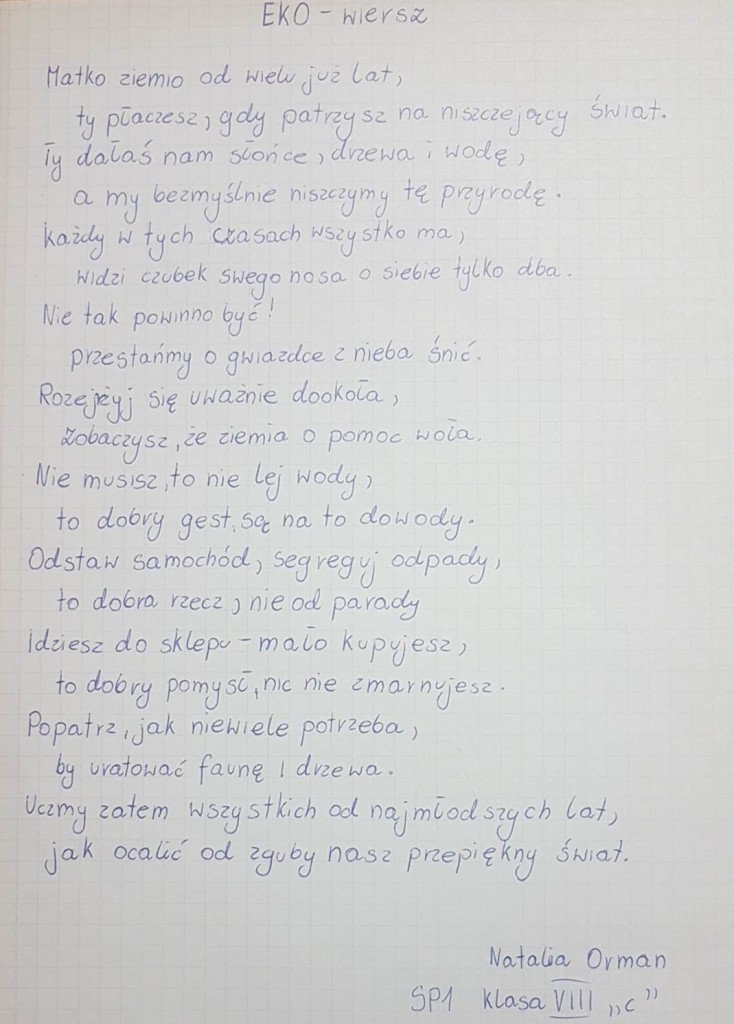 EKO - wiersz
Matko ziemio od wielu już lat,
ty płaczesz, gdy patrzysz na niszczejący świat.
Ty dałaś nam słońce, drzewa i wodę,
a my bezmyślnie niszczymy tę przyrodę.
Każdy w tych czasach wszystko ma,
widzi czubek swego nosa o siebie tylko dba.
Nie tak powinno być!
przestańmy o gwiazdce z nieba śnić.
Rozejżyj się uważnie dookoła,
zobaczysz, że ziemia o pomoc woła.
Nie musisz, to nie lej wody,
to dobry gest, są na to dowody.
Odstaw samochód, segreguj odpady,
to dobra rzecz, nie od parady
Idziesz do sklepu - mało kupujesz,
to dobry pomysł, nic nie zmarnujesz.
Popatrz, jak niewiele potrzeba,
by uratować faunę i drzewa.
Uczmy zatem wszystkich od najmłodszych lat,
jak ocalić od zguby nasz przepiękny świat.
Natalia Orman
SP1 klasa VIII „c”